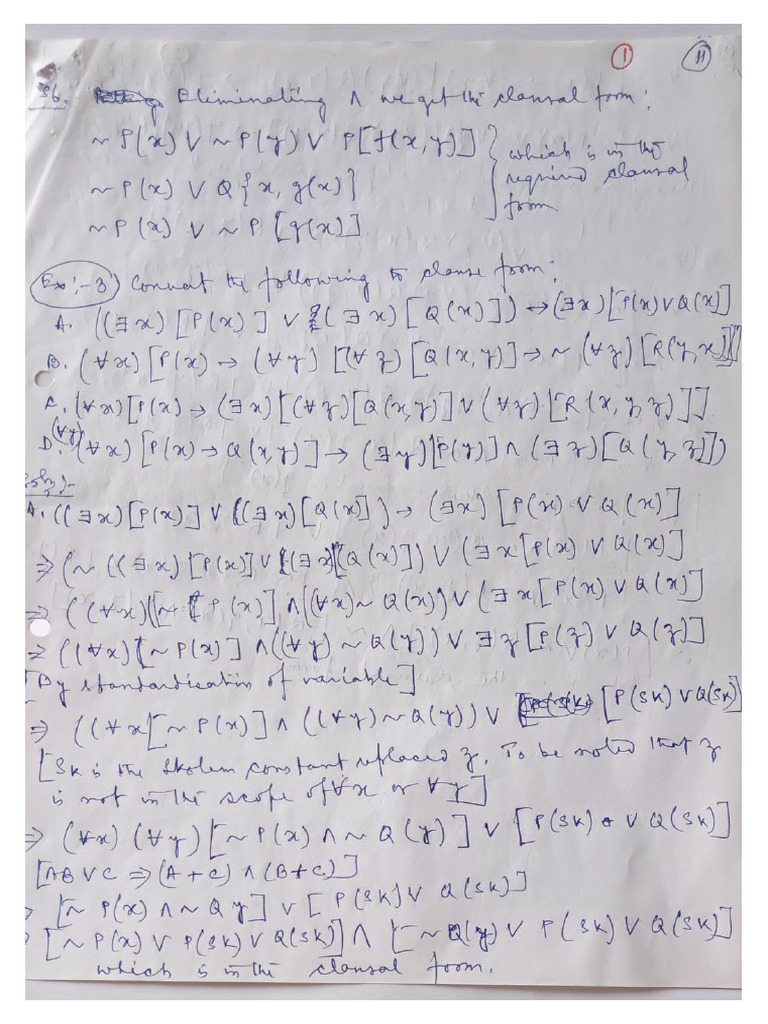 1 11
36. Eliminating ∧ we get the clausal form:
~P(x) ∨ ~P(y) ∨ P[f(x,y)] } which is in the
~P(x) ∨ Q{x, g(x)} required clausal
~P(x) ∨ ~P[g(x)] form
Ex:-3 Convert the following to clause form:
A. ((∃x)[P(x)] ∨ (∃x)[Q(x)]) → (∃x)[P(x) ∨ Q(x)]
B. (∀x)[P(x) → (∀y)[(∀z)[Q(x,y)] → ~(∀z)[R(y,x)]]
C. (∀x)[P(x) → (∃x)[(∀y)[Q(x,y)] ∨ (∀y)[R(x,y,z)]]
D. (∀x)(∀y)[P(x) → Q(x,y)] → (∃y)[P(y)] ∧ (∃z)[Q(y,z)])
Soln:-
A. ((∃x)[P(x)] ∨ ((∃x)[Q(x)]) → (∃x)[P(x) ∨ Q(x)]
⇒ (~((∃x)[P(x)] ∨ ((∃x)[Q(x)]) ∨ (∃x[P(x) ∨ Q(x)]
⇒ ((∀x)[~[P(x)] ∧ ((∀x)~Q(x)) ∨ (∃x[P(x) ∨ Q(x)]
⇒ ((∀x)[~P(x)] ∧ ((∀y)~Q(y)) ∨ ∃z[P(z) ∨ Q(z)]
[By standardisation of variable]
⇒ ((∀x[~P(x)] ∧ ((∀y)~Q(y)) ∨ [P(SK) ∨ Q(SK)]
[SK is the Skolem constant replaced z. To be noted that z
is not in the scope of ∀x or ∀y]
⇒ (∀x)(∀y)[~P(x) ∧ ~Q(y)] ∨ [P(SK) ∨ Q(SK)]
[AB ∨ C ⇒ (A+C) ∧ (B+C)]
[~P(x) ∧ ~Q y] ∨ [P(SK) ∨ Q(SK)]
[~P(x) ∨ P(SK) ∨ Q(SK)] ∧ [~Q(y) ∨ P(SK) ∨ Q(SK)]
which is in the clausal form.